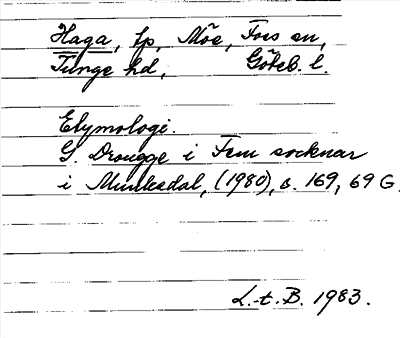 Haga, lp, Möe, Foss sn,
Tunge hd, Göteb. l.
Etymologi.
G. Drougge i Fem socknar
i Munkedal, (1980), s. 169, 69 G.
L.-t. B. 1983.